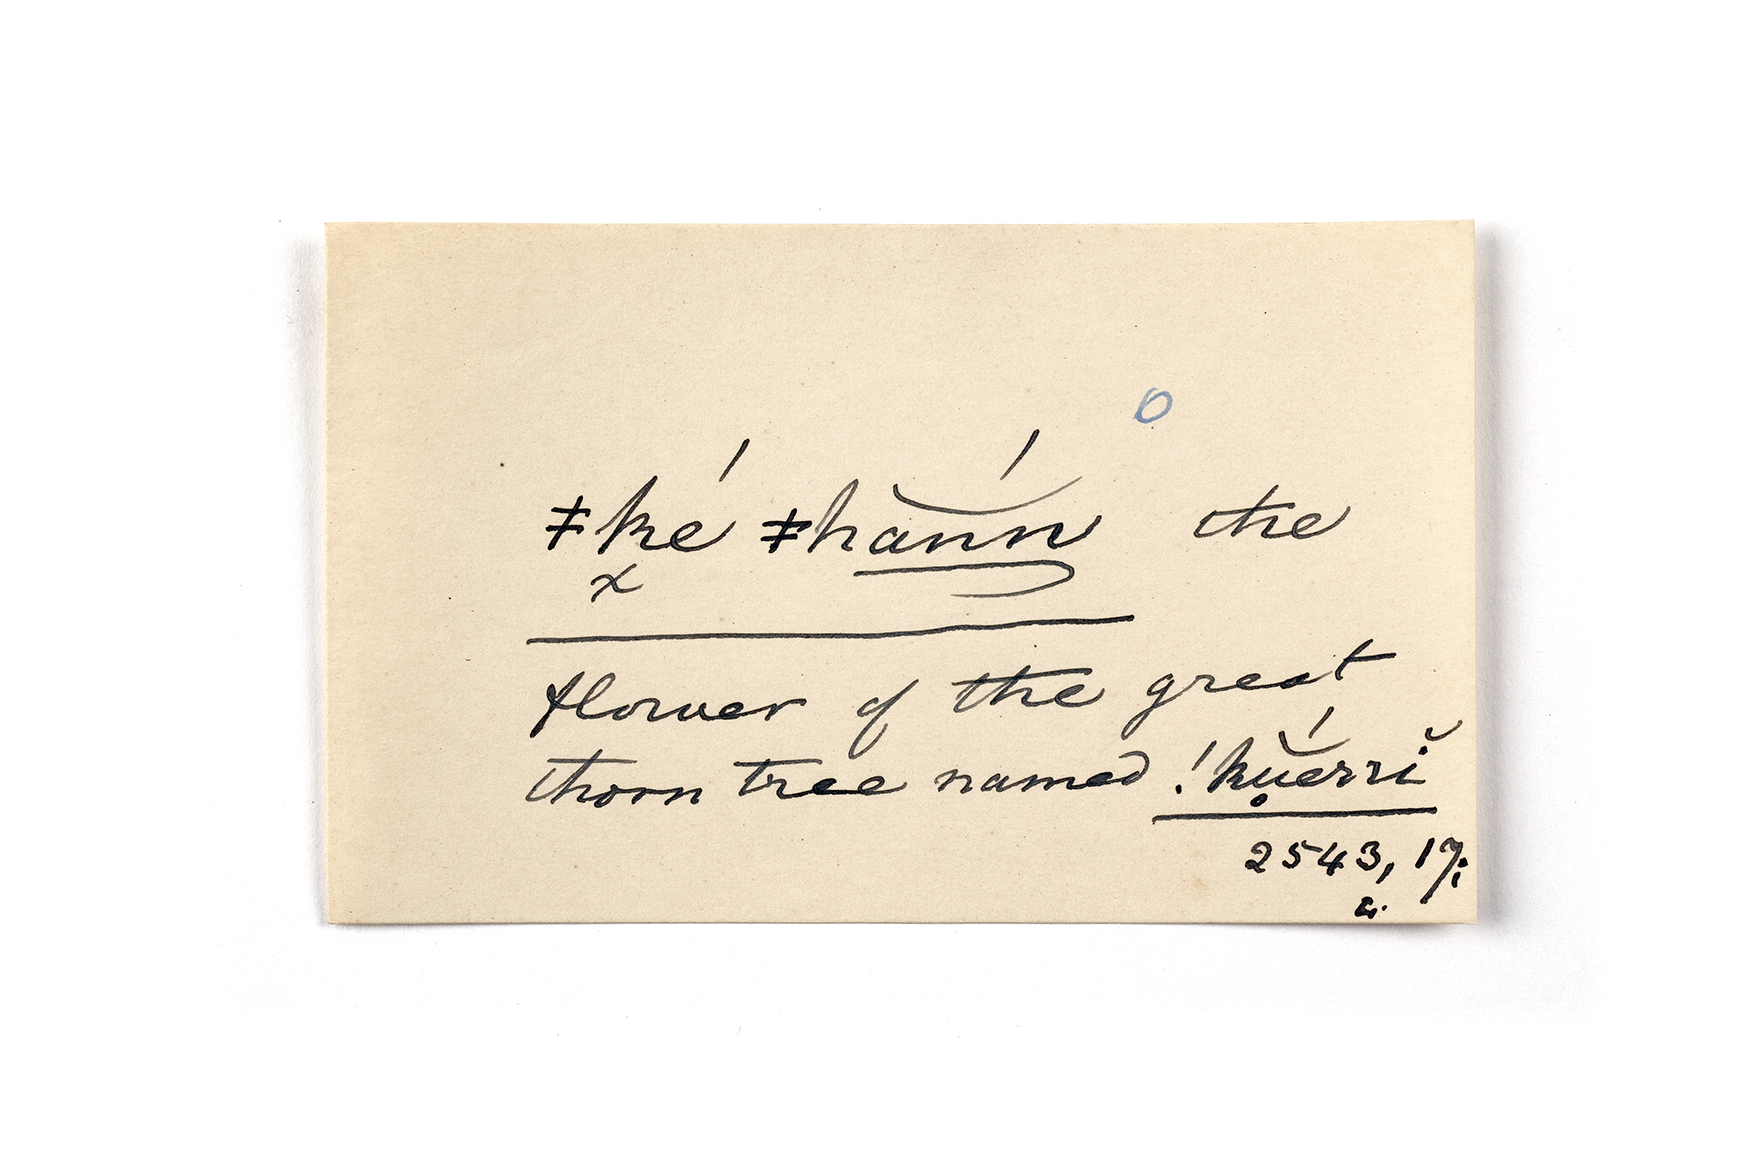 o
ǂk͓é ǂhắnn the
flower of the great
thorn tree named !kụ̆́errĭ
2543, 17;